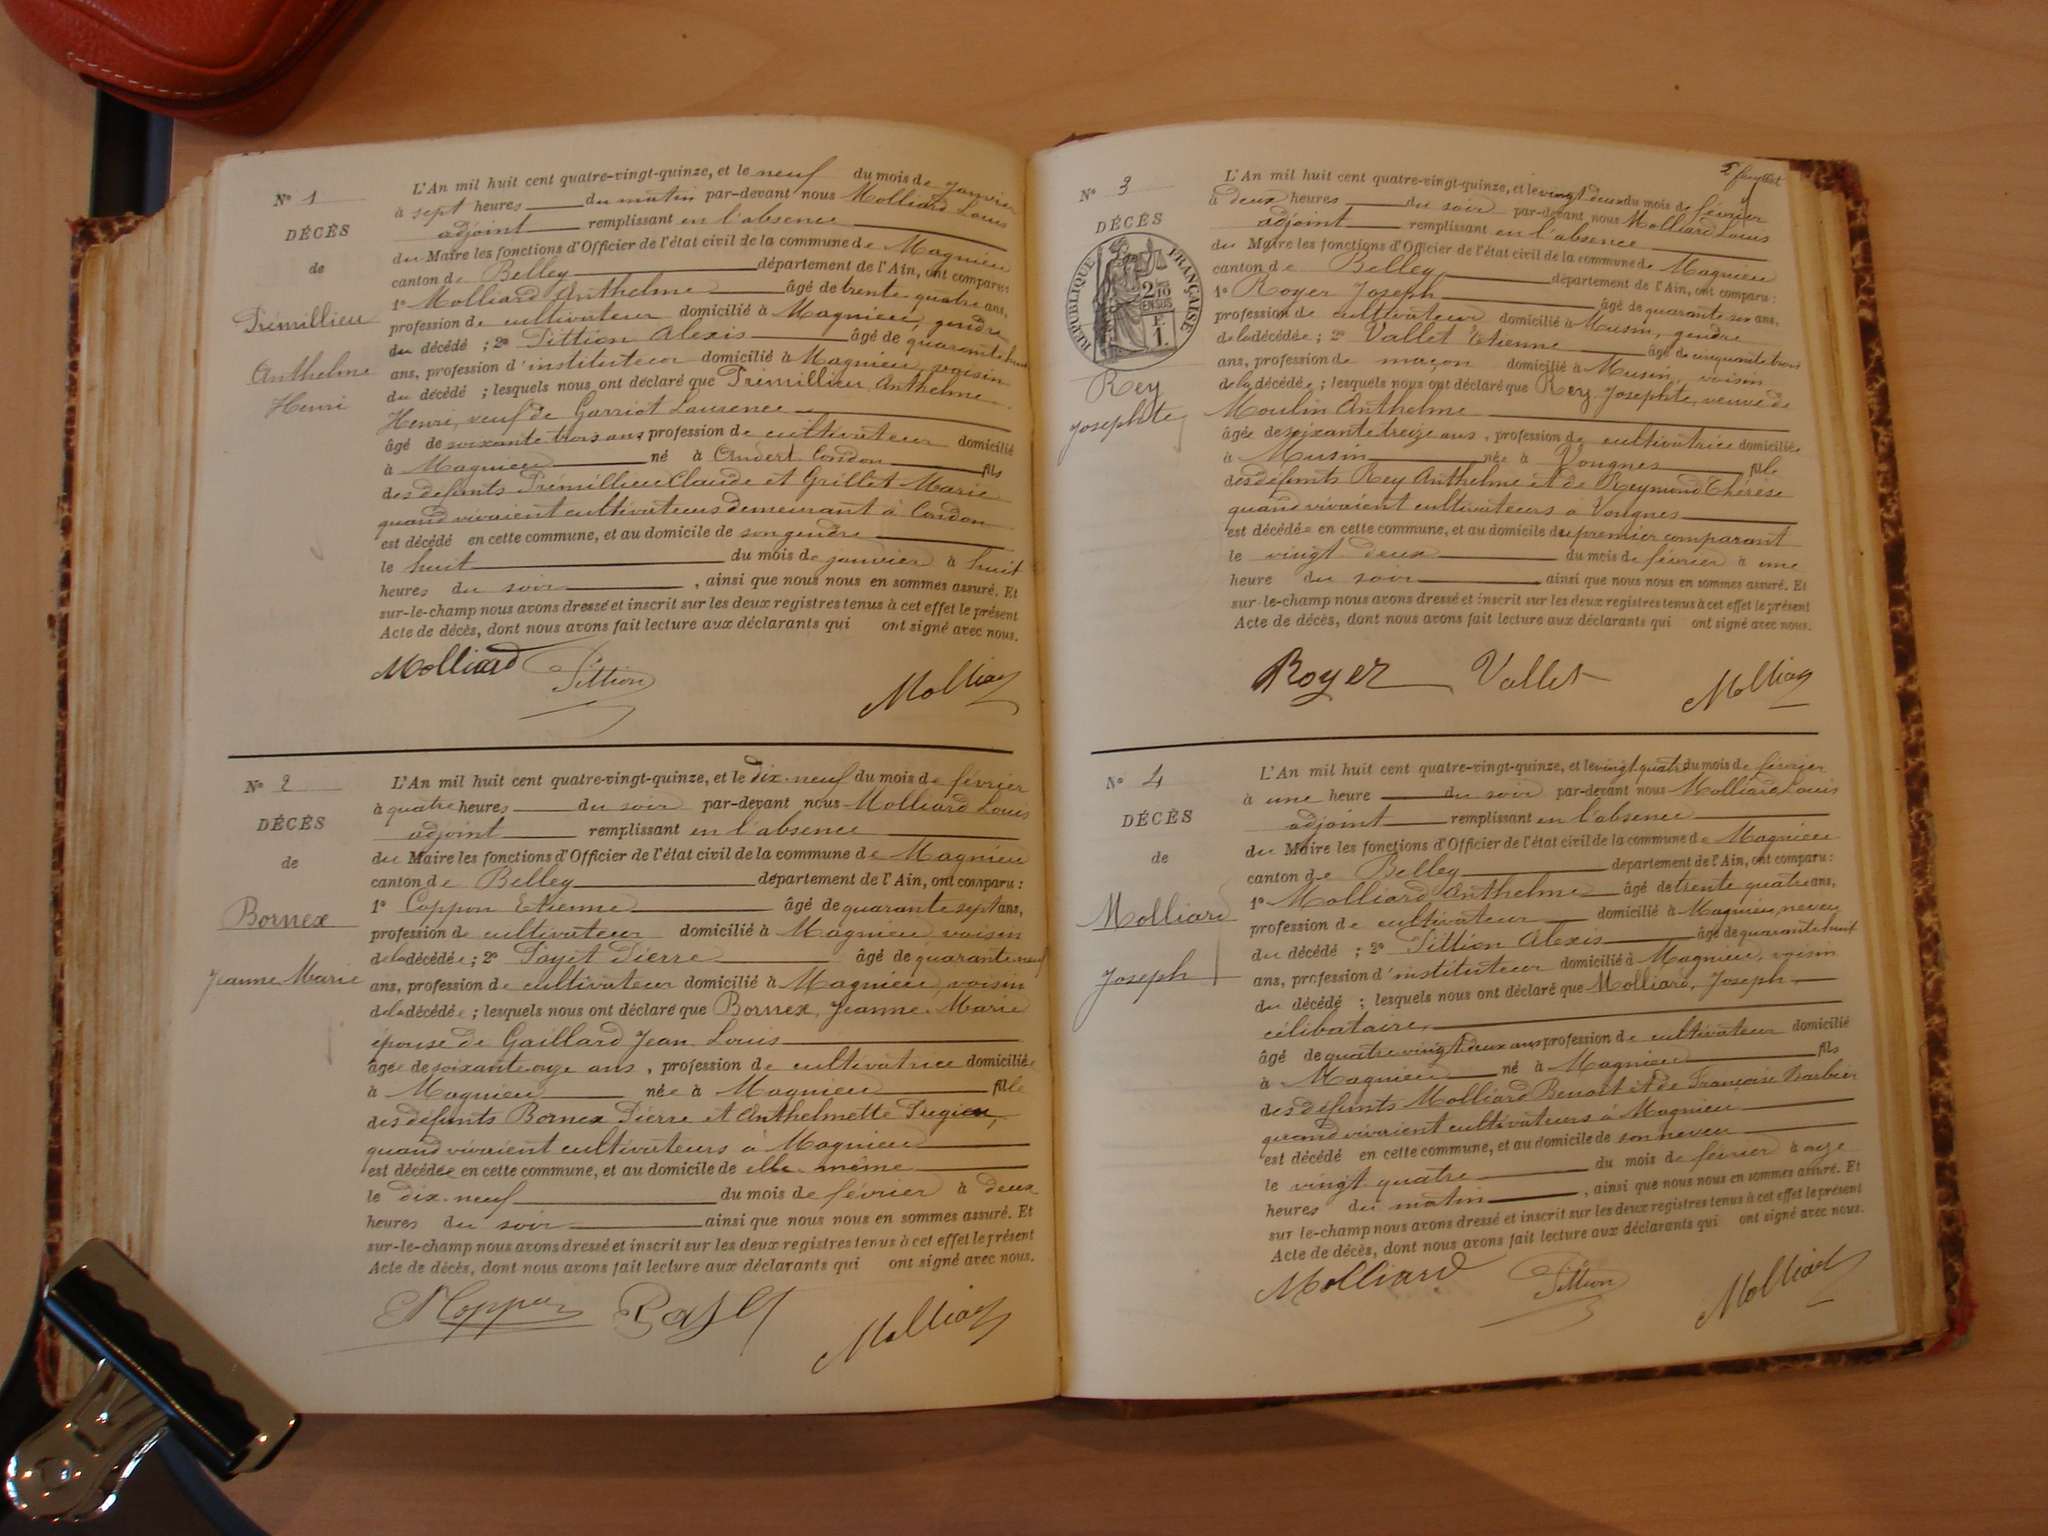 N° 1
DÉCÈS
de
Trémillieu
Anthelme
Henri
L'An mil huit cent quatre-vingt-quinze, et le neuf du mois de janvier
à sept heures du matin par-devant nous Molliard Louis
adjoint remplissant en l'absence
du Maire les fonctions d'Officier de l'état civil de la commune de Magnieu
canton de Belley département de l'Ain, ont comparu:
1° Molliard Anthelme âgé de trente quatre ans,
profession de cultivateur domicilié à Magnieu, gendre
du décédé ; 2° Pittion Alexis âgé de quarante huit
ans, profession d'instituteur domicilié à Magnieu, voisin
du décédé ; lesquels nous ont déclaré que Trémillieu Anthelme
Henri, veuf de Garriot Laurence
âgé de soixante trois ans, profession de cultivateur domicilié
à Magnieu né à Andert-Condon fils
des défunts Trémillieu Claude et Grillet Marie
quand vivaient cultivateurs demeurant à Condon
est décédé en cette commune, et au domicile de son gendre
le huit du mois de janvier à huit
heures du soir, ainsi que nous nous en sommes assuré. Et
sur-le-champ nous avons dressé et inscrit sur les deux registres tenus à cet effet le présent
Acte de décès, dont nous avons fait lecture aux déclarants qui ont signé avec nous.
Molliard Pittion Molliard
N° 2
DÉCÈS
de
Bornex
Jeanne Marie
L'An mil huit cent quatre-vingt-quinze, et le dix-neuf du mois de février
à quatre heures du soir par-devant nous Molliard Louis
adjoint remplissant en l'absence
du Maire les fonctions d'Officier de l'état civil de la commune de Magnieu
canton de Belley département de l'Ain, ont comparu :
1° Coppon Etienne âgé de quarante sept ans,
profession de cultivateur domicilié à Magnieu voisin
de la décédée ; 2° Payet Pierre âgé de quarante neuf
ans, profession de cultivateur domicilié à Magnieu, voisin
de la décédée ; lesquels nous ont déclaré que Bornex, Jeanne Marie
épouse de Gaillard Jean Louis
âgée de soixante onze ans, profession de cultivatrice domiciliée
à Magnieu née à Magnieu fille
des défunts Bornex Pierre et Anthelmette Pugieu,
quand vivaient cultivateurs à Magnieu
est décédée en cette commune, et au domicile de elle même
le dix-neuf du mois de février à deux
heures du soir ainsi que nous nous en sommes assuré. Et
sur-le-champ nous avons dressé et inscrit sur les deux registres tenus à cet effet le présent
Acte de décès, dont nous avons fait lecture aux déclarants qui ont signé avec nous.
Coppon Payet Molliard
2e feuillet
N° 3
DÉCÈS
RÉPUBLIQUE FRANÇAISE
2/10 EN SUS
F. 1.
Rey
Josephte
L'An mil huit cent quatre-vingt-quinze, et le vingt deux du mois de février
à deux heures du soir par-devant nous Molliard Louis
adjoint remplissant en l'absence
du Maire les fonctions d'Officier de l'état civil de la commune de Magnieu
canton de Belley département de l'Ain, ont comparu :
1° Royer Joseph âgé de quarante six ans,
profession de cultivateur domicilié à Musin, gendre
de la décédée ; 2° Vallet Etienne âgé de cinquante trois
ans, profession de maçon domicilié à Musin, voisin
de la décédée ; lesquels nous ont déclaré que Rey, Josephte, veuve de
Moulin Anthelme
âgée de soixante treize ans, profession de cultivatrice domiciliée
à Musin née à Vongnes fille
des défunts Rey Anthelme et de Reymond Thérèse
quand vivaient cultivateurs à Vongnes
est décédée en cette commune, et au domicile du premier comparant
le vingt deux du mois de février à une
heure du soir, ainsi que nous nous en sommes assuré. Et
sur-le-champ nous avons dressé et inscrit sur les deux registres tenus à cet effet le présent
Acte de décès, dont nous avons fait lecture aux déclarants qui ont signé avec nous.
Royer Vallet Molliard
N° 4
DÉCÈS
de
Molliard
Joseph
L'An mil huit cent quatre-vingt-quinze, et le vingt-quatre du mois de février
à une heure du soir par-devant nous Molliard Louis
adjoint remplissant en l'absence
du Maire les fonctions d'Officier de l'état civil de la commune de Magnieu
canton de Belley département de l'Ain, ont comparu :
1° Molliard Anthelme âgé de trente quatre ans,
profession de cultivateur domicilié à Magnieu, neveu
du décédé ; 2° Pittion Alexis âgé de quarante huit
ans, profession d'instituteur domicilié à Magnieu, voisin
du décédé ; lesquels nous ont déclaré que Molliard, Joseph,
célibataire,
âgé de quatre vingt deux ans profession de cultivateur domicilié
à Magnieu né à Magnieu fils
des défunts Molliard Benoit et de Françoise Barbier
quand vivaient cultivateurs à Magnieu
est décédé en cette commune, et au domicile de son neveu
le vingt quatre du mois de février à onze
heures du matin, ainsi que nous nous en sommes assuré. Et
sur le-champ nous avons dressé et inscrit sur les deux registres tenus à cet effet le présent
Acte de décès, dont nous avons fait lecture aux déclarants qui ont signé avec nous.
Molliard Pittion Molliard